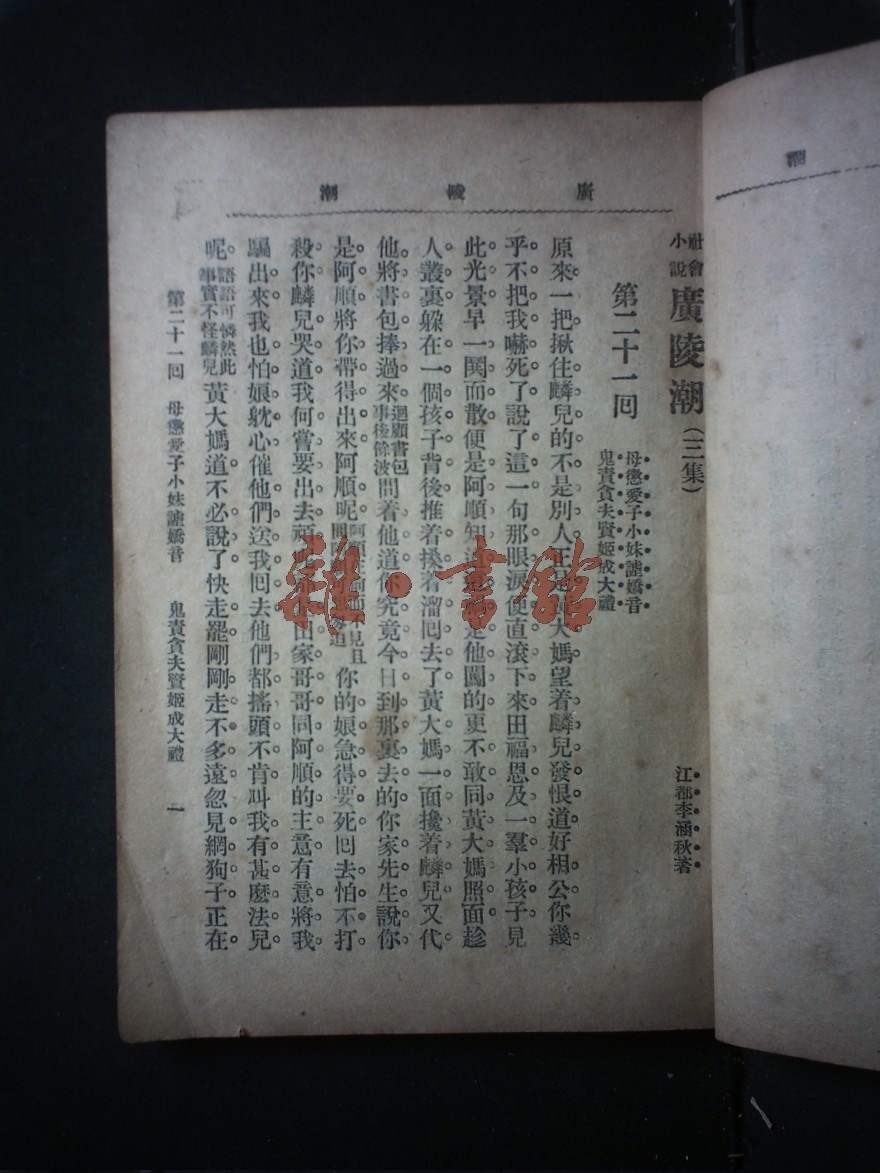 廣陵潮
潮
社會小說 廣陵潮（三集）
江都李涵秋著
第二十一回
母懲愛子小妹謔嬌音
鬼責貪夫賢姬成大禮
原來一把揪住麟兒的不是別人正是黃大媽望着麟兒發恨道好相公你幾
乎不把我嚇死了說了這一句那眼淚便直滾下來田福恩及一羣小孩子見
此光景早一閧而散便是阿順知道是他闖的更不敢同黃大媽照面趁
人叢裏躲在一個孩子背後推着搡着溜回去了黃大媽一面攙着麟兒又代
他將書包捧過來迴顧書包事後餘波問着他道你究竟今日到那裏去的你家先生說你
是阿順將你帶得出來阿順呢你的娘急得要死回去怕不打
殺你麟兒哭道我何嘗要出去頑田家哥哥同阿順的主意有意將我
騙出來我也怕娘躭心催他們送我回去他們都搖頭不肯叫我有甚麼法兒
呢語語可憐然此事實不怪麟兒黃大媽道不必說了快走罷剛剛走不多遠忽見網狗子正在
第二十一回 母懲愛子小妹謔嬌音 鬼責貪夫賢姬成大禮 一
雜·書館